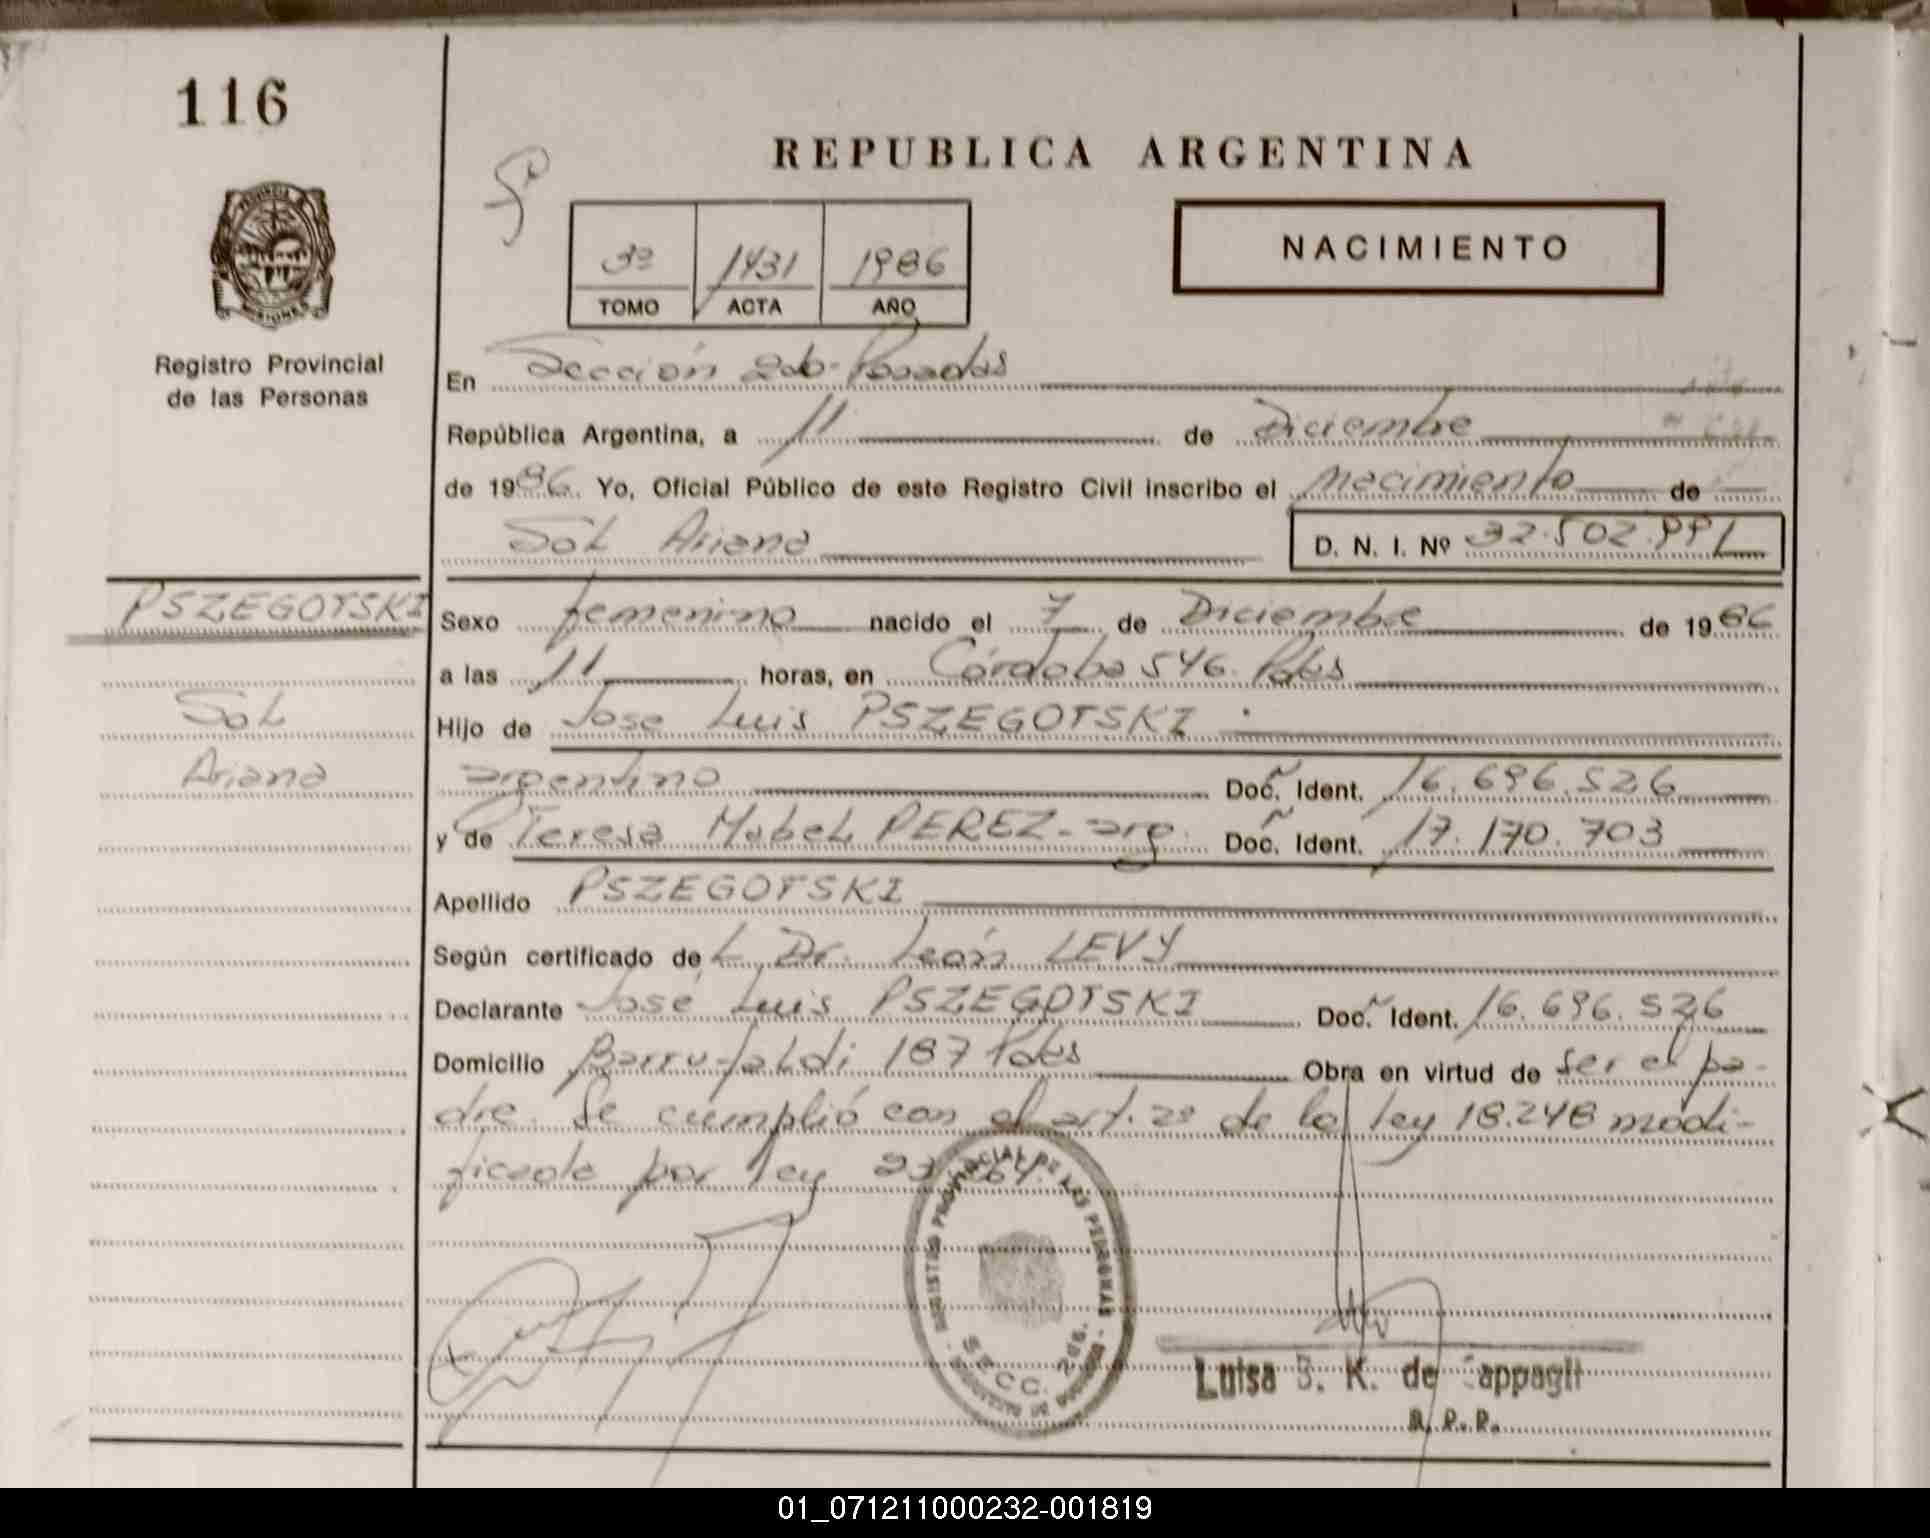 116
REPUBLICA ARGENTINA
3º 1431 1986
TOMO ACTA AÑO
NACIMIENTO
PROVINCIA DE MISIONES
Registro Provincial
de las Personas
En Sección 2da-Posadas
República Argentina, a 11 de Diciembre
de 1986. Yo, Oficial Público de este Registro Civil inscribo el nacimiento de
Sol Ariana D. N. I. Nº 32.502.991
PSZEGOTSKI
Sol
Ariana
Sexo femenino nacido el 7 de Diciembre de 1986
a las 11 horas, en Córdoba 546. Pdas
Hijo de Jose Luis PSZEGOTSKI
argentino Doc. Ident. 16.696.526
y de Teresa Mabel PEREZ-arg. Doc. Ident. 17.170.703
Apellido PSZEGOTSKI
Según certificado de L Dr. León LEVY
Declarante José Luis PSZEGOTSKI Doc. Ident. 16.696.526
Domicilio Barrufaldi 187 Pdas Obra en virtud de ser el pa-
dre. Se cumplió con el art. 2º de la ley 18.248 modi-
ficada por ley
REGISTRO PROVINCIAL DE LAS PERSONAS
SECC. 2da.
Luisa B. K. de
01_071211000232-001819